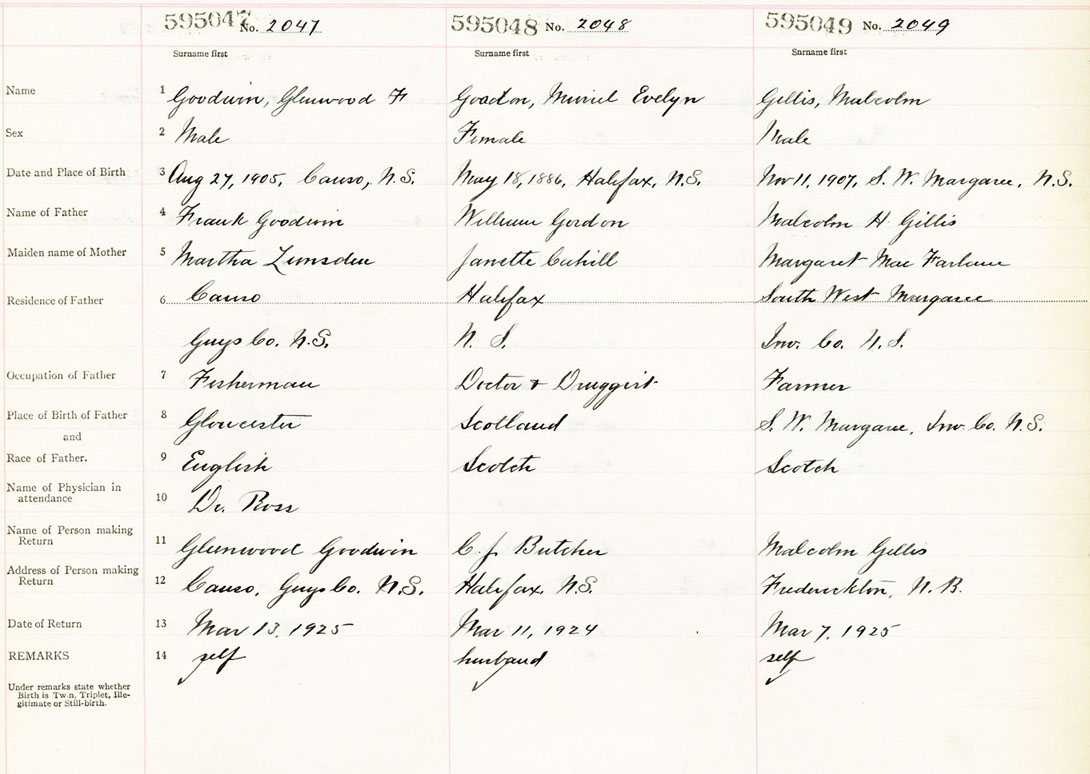 595047 No. 2047 595048 No. 2048 595049 No. 2049
Surname first Surname first Surname first
Name 1 Goodwin, Glenwood F Gordon, Muriel Evelyn Gillis, Malcolm
Sex 2 Male Female Male
Date and Place of Birth 3 Aug 27, 1905, Canso, N.S. May 18, 1886, Halifax, N.S. Nov 11, 1907, S. W. Margaree, N.S.
Name of Father 4 Frank Goodwin William Gordon Malcolm H Gillis
Maiden name of Mother 5 Martha Lumsden Janette Cahill Margaret Mac Farlane
Residence of Father 6 Canso Halifax South West Margaree
Guys Co. N.S. N. S. Inv. Co. N.S.
Occupation of Father 7 Fisherman Doctor & Druggist Farmer
Place of Birth of Father 8 Gloucester Scotland S. W. Margaree, Inv. Co. N.S.
and
Race of Father. 9 English Scotch Scotch
Name of Physician in
attendance 10 Dr. Ross
Name of Person making
Return 11 Glenwood Goodwin C. J. Butcher Malcolm Gillis
Address of Person making
Return 12 Canso, Guys Co. N.S. Halifax, N.S. Frederickton, N.B.
Date of Return 13 Mar 13, 1925 Mar 11, 1924 Mar 7, 1925
REMARKS 14 self husband self
Under remarks state whether
Birth is Twin, Triplet, Ille-
gitimate or Still-birth.